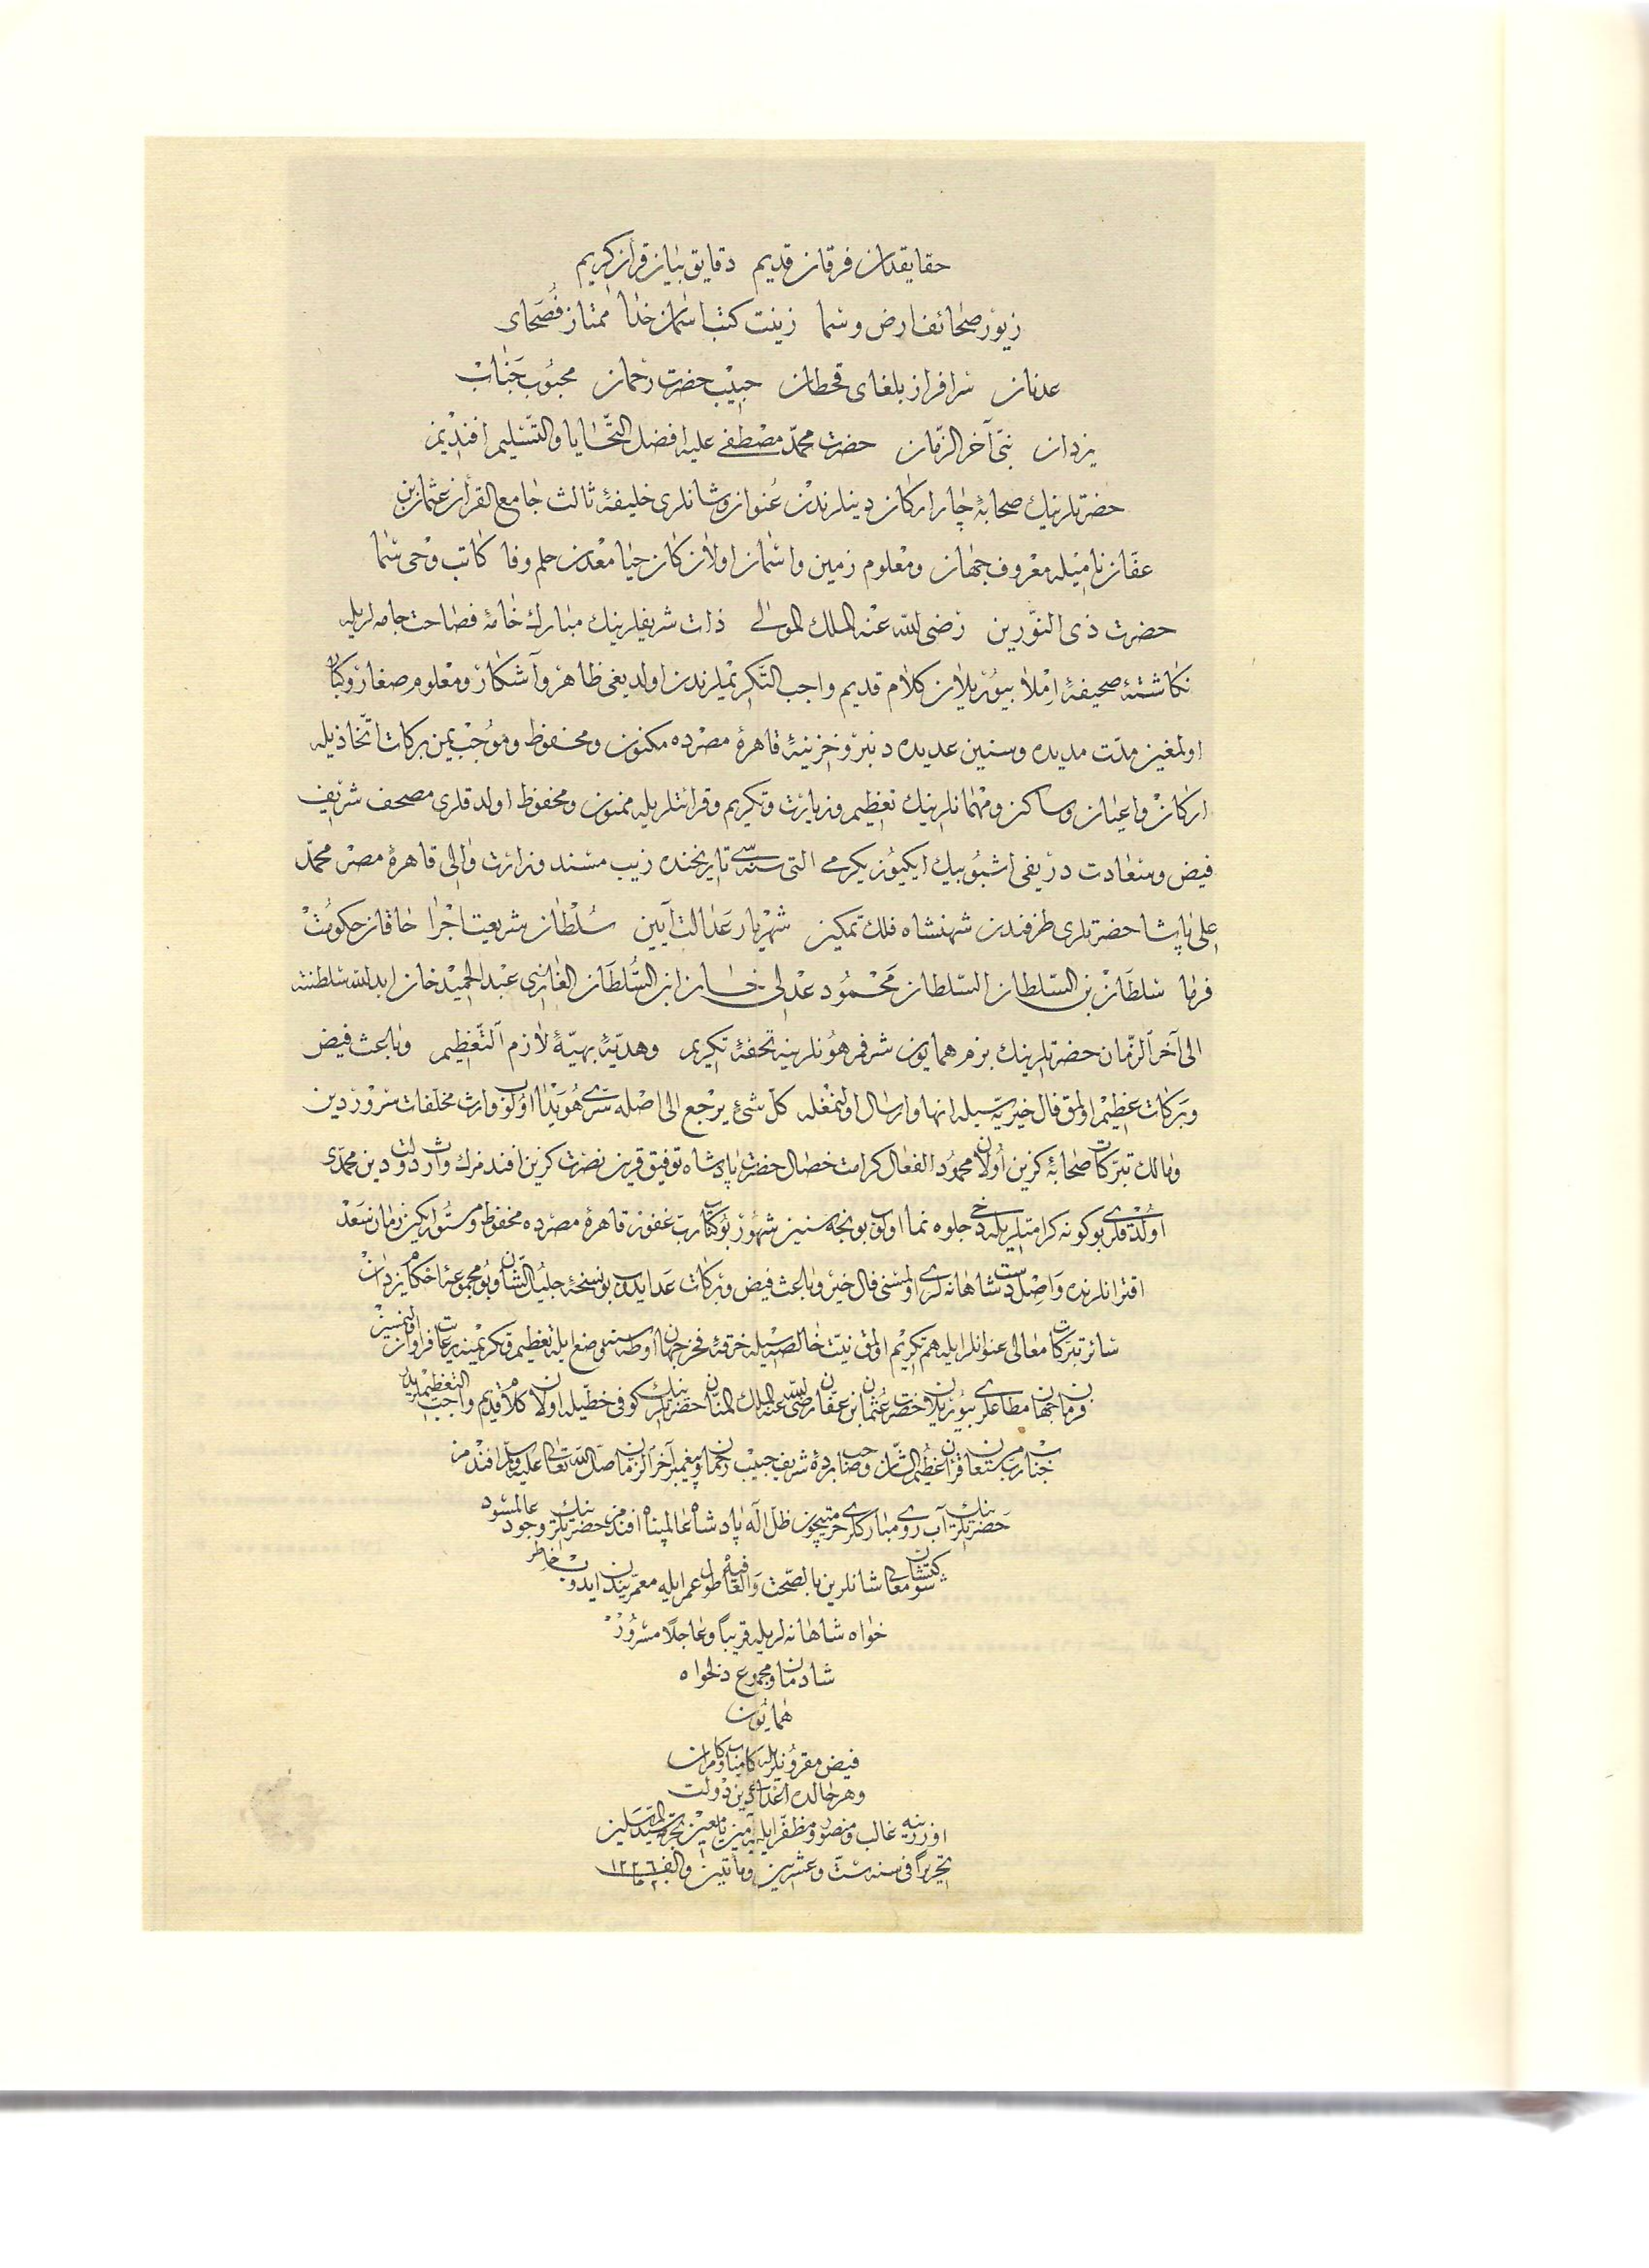 حقایقدان فرقان قدیم دقایق بیان قرآن کریم
زیور صحائف ارض و سما زینت کتب آسمان خدا ممتاز فصحای
عدنان سرافراز بلغای قحطان حبیب حضرت رحمان محبوب جناب
یزدان نبیّ آخر الزّمان حضرت محمّد مصطفی علیه افضل التّحایا والتّسلیم افندیمز
حضرتلرینك صحابهٔ چار ارکان دینلرندن عنوان و شانلری خلیفهٔ ثالث جامع القرآن عثمان بن
عفّان نامیله معروف جهان و معلوم زمین و آسمان اولان کان حیا معدن حلم و وفا کاتب وحی سما
حضرت ذی النّورین رضی الله عنه الملك المولی ذات شریفلرینك مبارك خامهٔ فصاحت جامه لریله
نکاشتهٔ صحیفهٔ املا بیوریلان کلام قدیم واجب التّکریملرندن اولدیغی ظاهر و آشکار و معلوم صغار و کبار
اولمغین مدّت مدیده و سنین عدیده دنبرو خزینهٔ قاهرهٔ مصرده مکنون و محفوظ و موجب یمن برکات اتّخاذیله
ارکان و اعیان و ساکن و مهمانلرینك تعظیم و زیارت و تکریم و قرائتلریله ممنون و محفوظ اولدقلری مصحف شریف
فیض و سعادت دریفی اشبو بیك ایکیوز یکرمی التی سنه سی تاریخنده زیب مسند وزارت والی قاهرهٔ مصر محمّد
علی پاشا حضرتلری طرفندن شهنشاه فلك تمکین شهریار عدالت آیین سلطان شریعت اجرا خاقان حکومت
فرما سلطان بن السّلطان السّلطان محمود عدلی خان ابن السّلطان الغازی عبد الحمید خان ابد الله سلطنته
الی آخر الزّمان حضرتلرینك بزم همایون شرفمرهونلرینه تحفهٔ تکریم و هدیّهٔ بهیّهٔ لازم التّعظیم و باعث فیض
و برکات عظیم اولمق فال خیریّه سیله انها و ارسال اولنمغله کلّ شیء یرجع الی اصله سرّی هویدا اولوب وارث مخلّفات سرور دین
و مالك تبرّکات صحابهٔ کزین اولان محمود الفعال کرامت خصال حضرت پادشاه توفیق قرین نصرت کزین افندمزك وارث دولت دین محمّدی
اولدقلری بو کونه کرامتلریله دخی جلوه نما اولوب بونجه سنین شهور بو کتاب ربّ غفور قاهرهٔ مصرده محفوظ و مستور ایکن زمان سعد
اقترانلرنده واصل دست شاهانه لری اولمسنی فال خیر و باعث فیض و برکات عد ایدوب بو نسخهٔ جلیل الشّان و بو مجموعهٔ احکام یزدان
سائر تبرّکات معالی عنوانلرایله هم تکریم اولمق نیّت خالصه سیله خرقهٔ فخر جهان اوطه سنه وضع ایله تعظیم و تکریمنه رعایت فراوان اولنمسیچون
فرمان جهان مطاعلری بیوریلان حضرت عثمان بن عفّان رضی الله عنه الملك المنّان حضرتلرینك کوفی خطّیله اولان کلام قدیم واجب التعظیملریله
جناب ربّ مستعان قرآن عظیم الشّان و صاحب بردهٔ شریف حبیب رحمان و پیغمبر آخر الزّمان صلّی الله تعالی علیه و سلّم افندمز
حضرتلرینك آب روی مبارکلری حرمتیچون ظلّ اله پادشاه عالمپناه افندمز حضرتلرینك وجود عالمسود
شاهانلرین بالصّحت والعافیه طول عمر ایله معمّرین ایدوب خاطر
خواه شاهانه لریله قریباً و عاجلاً مسرور
شادمان و مجموع دلخواه
همایون
فیض مقرونلریله کامیاب و کامران
و هر حالده اعدای دین و دولت
اوزرینه غالب و منصور و مظفّر ایلیه آمین یا معین بحرمة سیّد المرسلین
تحریراً فی سنه ستّ و عشرین و مأتین و الف ١٢٢٦